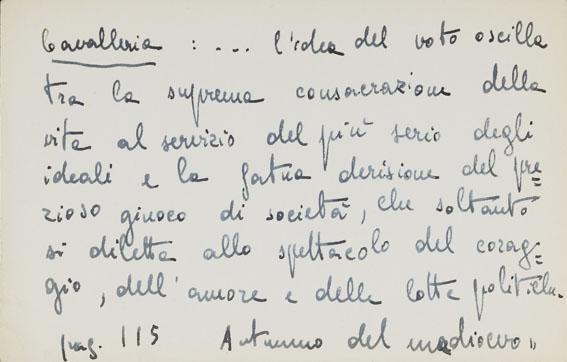 Cavalleria : ... l'idea del voto oscilla
tra la suprema consacrazione della
vita al servizio del più serio degli
ideali e la fatua derisione del pre=
zioso giuoco di società, che soltanto
si diletta allo spettacolo del corag=
gio, dell'amore e delle lotte politiche.
pag. 115 Autunno del medioevo „